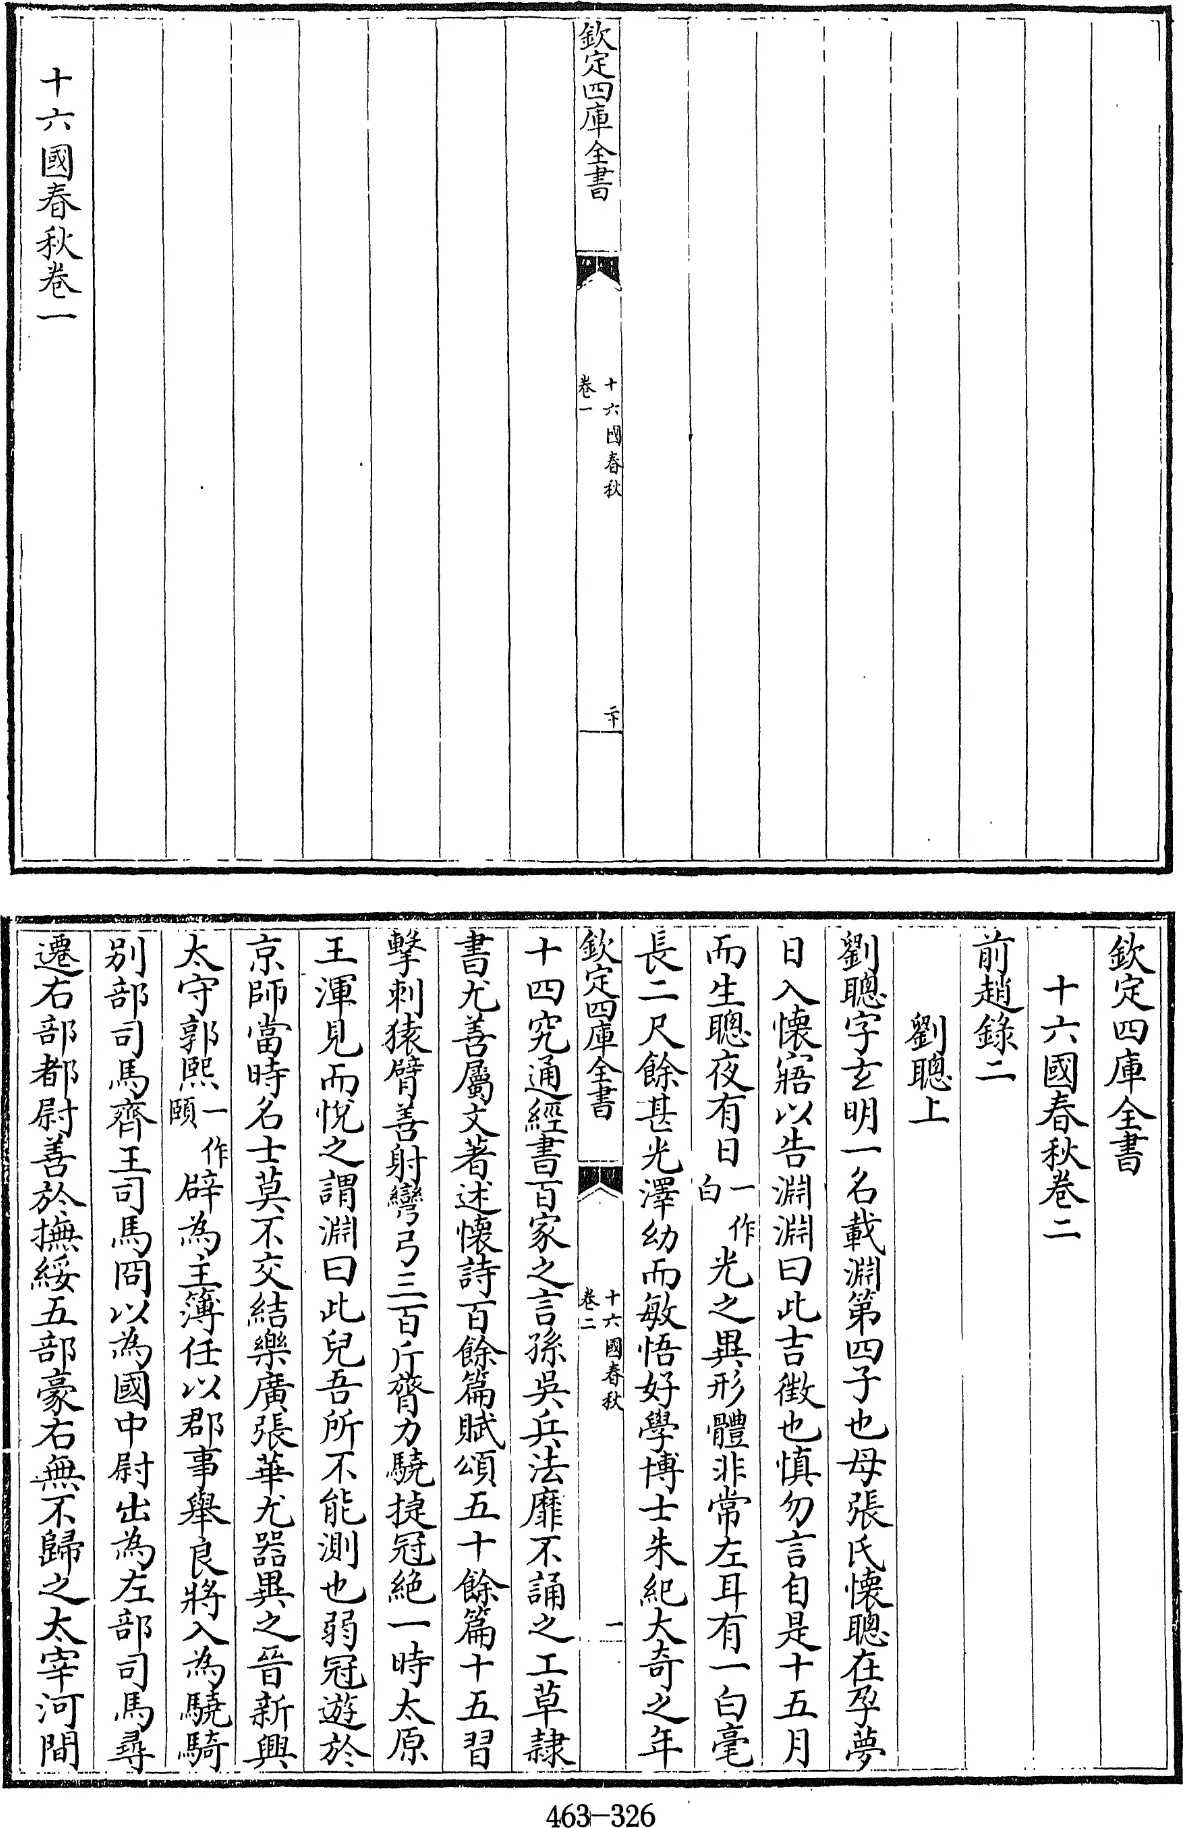 欽定四庫全書
十六國春秋
卷一
二十
十六國春秋卷一
欽定四庫全書
十六國春秋卷二
前趙錄二
劉聰上
劉聰字玄明一名載淵第四子也母張氏懷聰在孕夢
日入懷寤以告淵淵曰此吉徵也慎勿言自是十五月
而生聰夜有日一作白光之異形體非常左耳有一白毫
長二尺餘甚光澤幼而敏悟好學博士朱紀大奇之年
欽定四庫全書
十六國春秋
卷二
一
十四究通經書百家之言孫吳兵法靡不誦之工草隷
書尤善屬文著述懷詩百餘篇賦頌五十餘篇十五習
擊刺猿臂善射彎弓三百斤膂力驍捷冠絶一時太原
王渾見而悅之謂淵曰此兒吾所不能測也弱冠遊於
京師當時名士莫不交結樂廣張華尤器異之晉新興
太守郭熙一作頤辟為主簿任以郡事舉良將入為驍騎
别部司馬齊王司馬冏以為國中尉出為左部司馬尋
遷右部都尉善於撫綏五部豪右無不歸之太宰河間
463-326